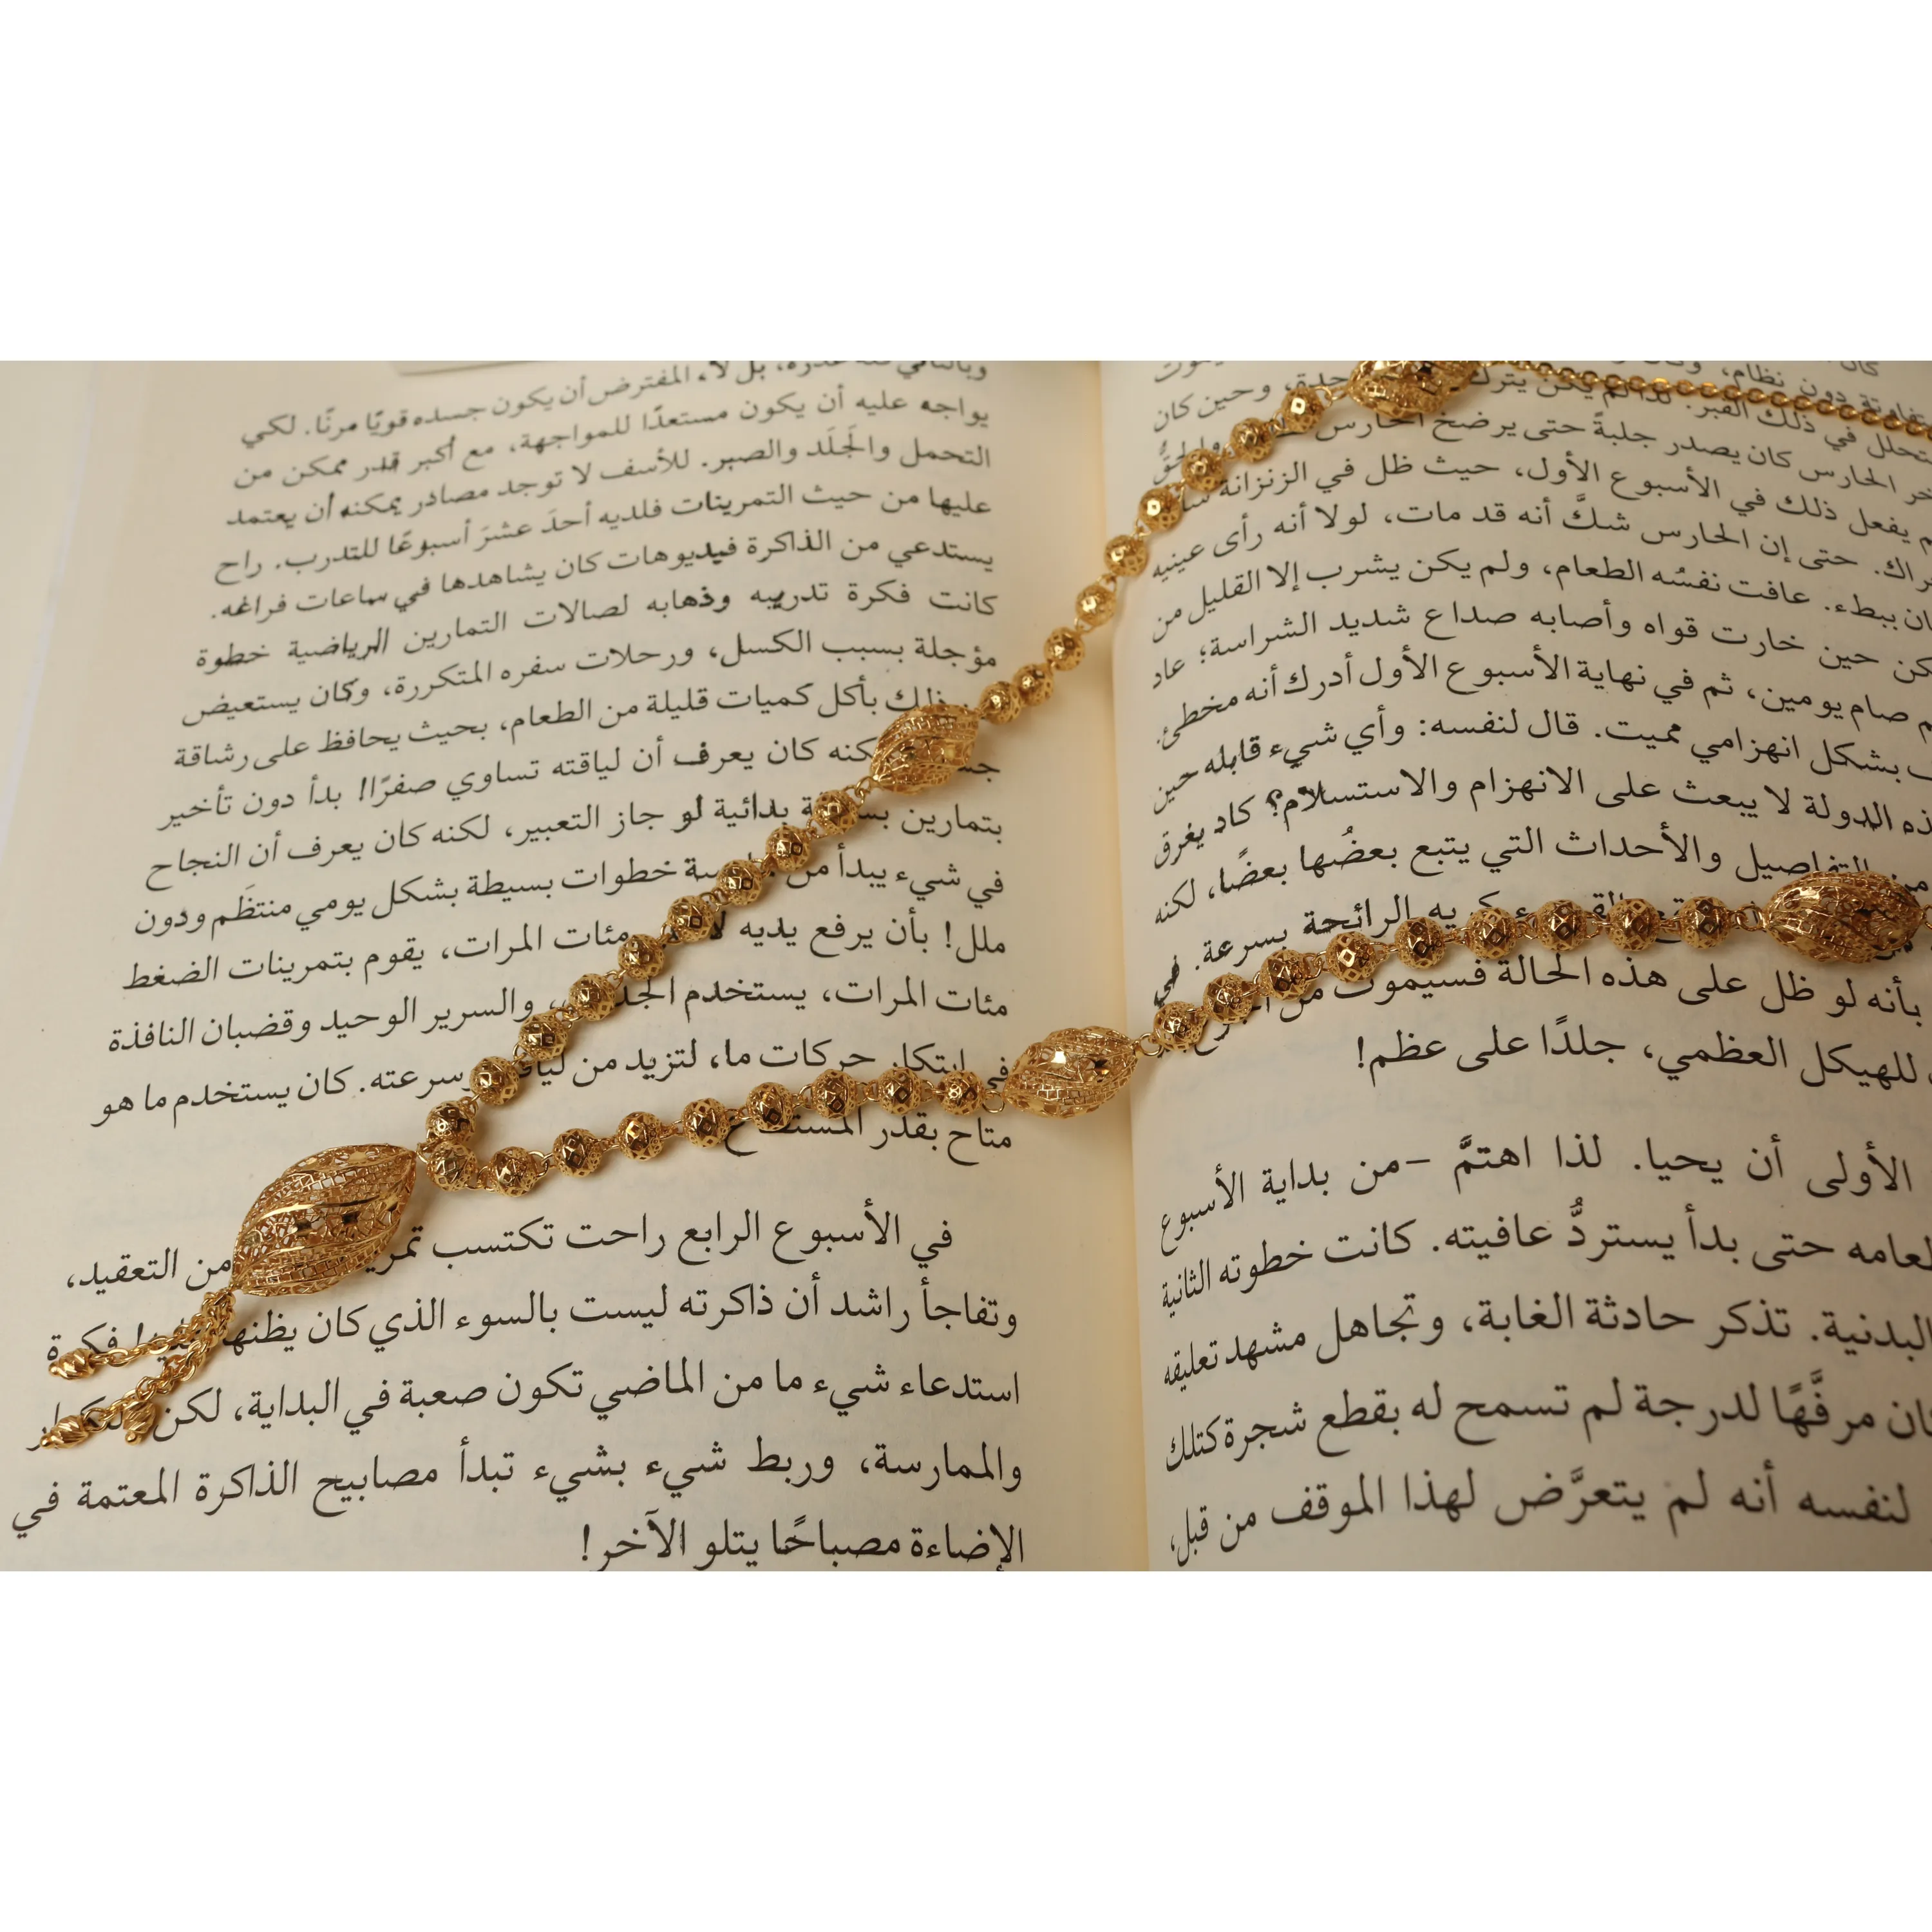 كان
دون نظام،
يتحلل في ذلك القبر. لذا لم يكن يترك وحين كان
الحارس كان يصدر جلبةً حتى يرضخ الحارس
يفعل ذلك في الأسبوع الأول، حيث ظل في الزنزانة
حراك. حتى إن الحارس شكَّ أنه قد مات، لولا أنه رأى عينيه
ببطء. عافت نفسُه الطعام، ولم يكن يشرب إلا القليل من
حين خارت قواه وأصابه صداع شديد الشراسة؛ عاد
صام يومين، ثم في نهاية الأسبوع الأول أدرك أنه مخطئ.
بشكل انهزامي مميت. قال لنفسه: وأي شيء قابله حين
الدولة لا يبعث على الانهزام والاستسلام؟ كاد يغرق
من التفاصيل والأحداث التي يتبع بعضُها بعضًا، لكنه
كريه الرائحة بسرعة. في
بأنه لو ظل على هذه الحالة فسيموت من
للهيكل العظمي، جلدًا على عظم!
الأولى أن يحيا. لذا اهتمَّ -من بداية الأسبوع
حتى بدأ يستردُّ عافيته. كانت خطوته الثانية
البدنية. تذكر حادثة الغابة، وتجاهل مشهد تعليقه
مرفَّهًا لدرجة لم تسمح له بقطع شجرة كتلك
لنفسه أنه لم يتعرَّض لهذا الموقف من قبل،
بل لا، المفترض أن يكون جسده قويًا مرنًا. لكي
يواجه عليه أن يكون مستعدًا للمواجهة، مع أكبر قدر ممكن من
التحمل والجَلَد والصبر. للأسف لا توجد مصادر يمكنه أن يعتمد
عليها من حيث التمرينات فلديه أحدَ عشرَ أسبوعًا للتدرب. راح
يستدعي من الذاكرة فيديوهات كان يشاهدها في ساعات فراغه.
كانت فكرة تدريبه وذهابه لصالات التمارين الرياضية خطوة
مؤجلة بسبب الكسل، ورحلات سفره المتكررة، وكان يستعيض
ذلك بأكل كميات قليلة من الطعام، بحيث يحافظ على رشاقة
كان يعرف أن لياقته تساوي صفرًا! بدأ دون تأخير
بتمارين بدائية لو جاز التعبير، لكنه كان يعرف أن النجاح
في شيء يبدأ من خطوات بسيطة بشكل يومي منتظَم ودون
ملل! بأن يرفع يديه مئات المرات، يقوم بتمرينات الضغط
مئات المرات، يستخدم والسرير الوحيد وقضبان النافذة
في ابتكار حركات ما، لتزيد من وسرعته. كان يستخدم ما هو
متاح بقدر
في الأسبوع الرابع راحت تكتسب من التعقيد،
وتفاجأ راشد أن ذاكرته ليست بالسوء الذي كان يظنه فكرة
استدعاء شيء ما من الماضي تكون صعبة في البداية، لكن
والممارسة، وربط شيء بشيء تبدأ مصابيح الذاكرة المعتمة في
الإضاءة مصباحًا يتلو الآخر!